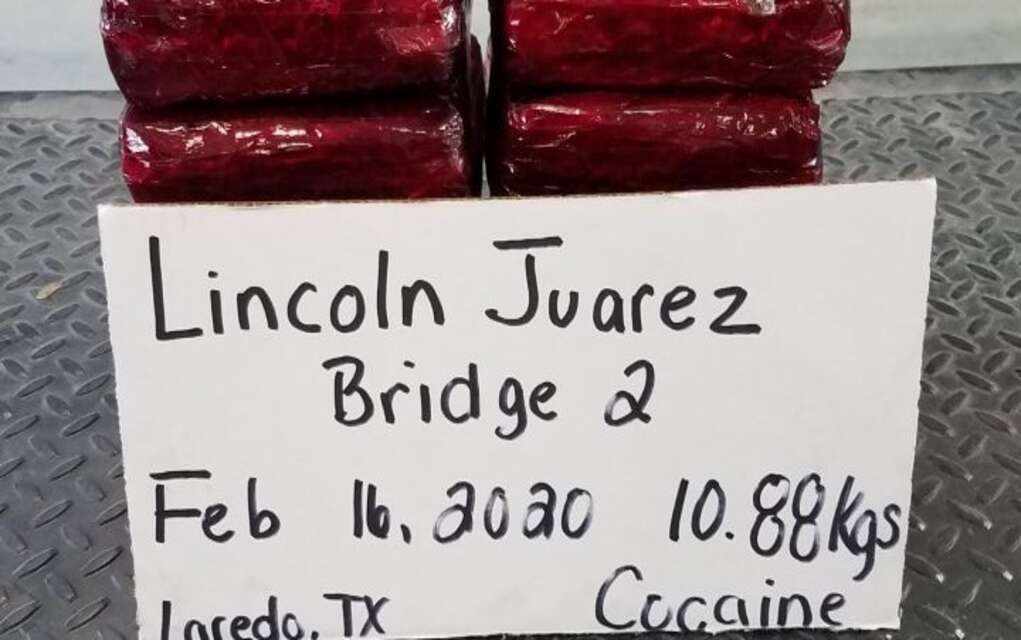 Lincoln Juarez
Bridge 2
Feb 16, 2020 10.88kgs
Laredo, TX Cocaine